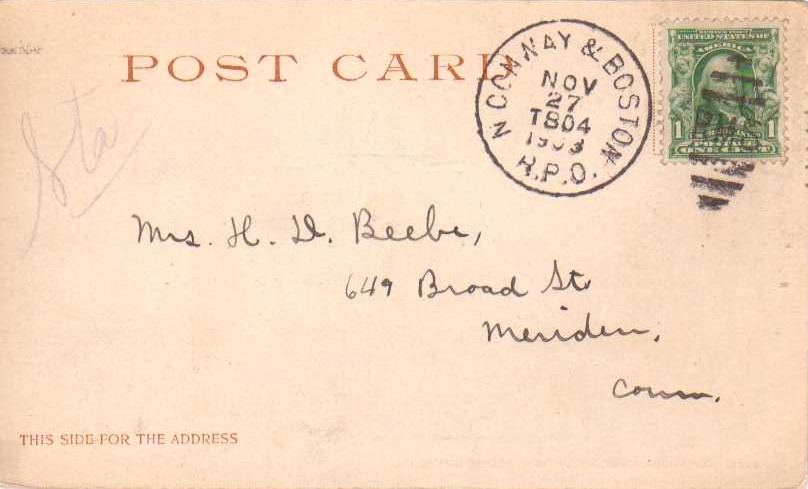 POST CARD
N CONWAY & BOSTON
NOV
27
T804
1903
R.P.O.
UNITED STATES OF
AMERICA
1 1
POSTAGE
ONE CENT
Sta
Mrs. H. D. Beebe,
649 Broad St
Meriden,
Conn.
THIS SIDE FOR THE ADDRESS